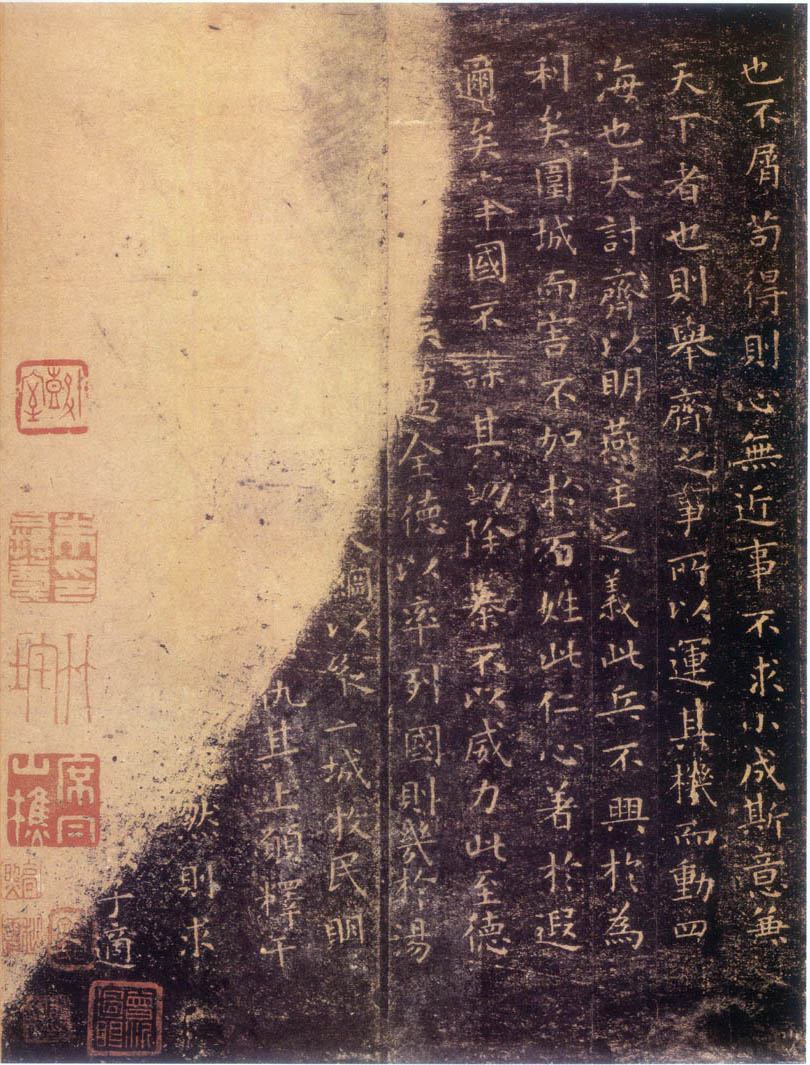 也不屑苟得則心無近事不求小成斯意兼
天下者也則舉齊之事所以運其機而動四
海也夫討齊以明燕主之義此兵不興於為
利矣圍城而害不加於百姓此仁心著於遐
邇矣舉國不謀其功除暴不以威力此至德
邁全德以率列國則幾於湯
綱以縱二城收民明
仇其上願釋干
則求
子適